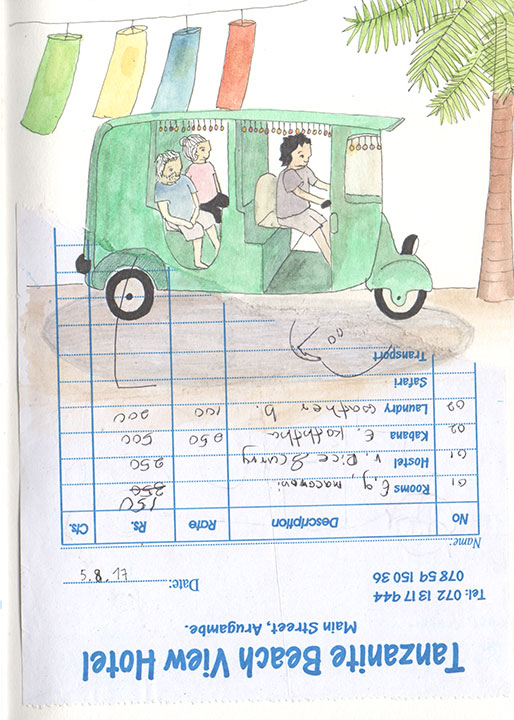 Tanzanite Beach View Hotel
Main Street, Arugambe.
Tel: 072 1317 444 Date: 5.8.17
078 54 150 36
Name:
No Description Rate Rs. Cts.
01 Rooms macaroni 350 150
01 Hostel v. Rice & curry 250
02 Kabana E. Koththu 250 500
02 Laundry b. 100 200
Safari
Transport